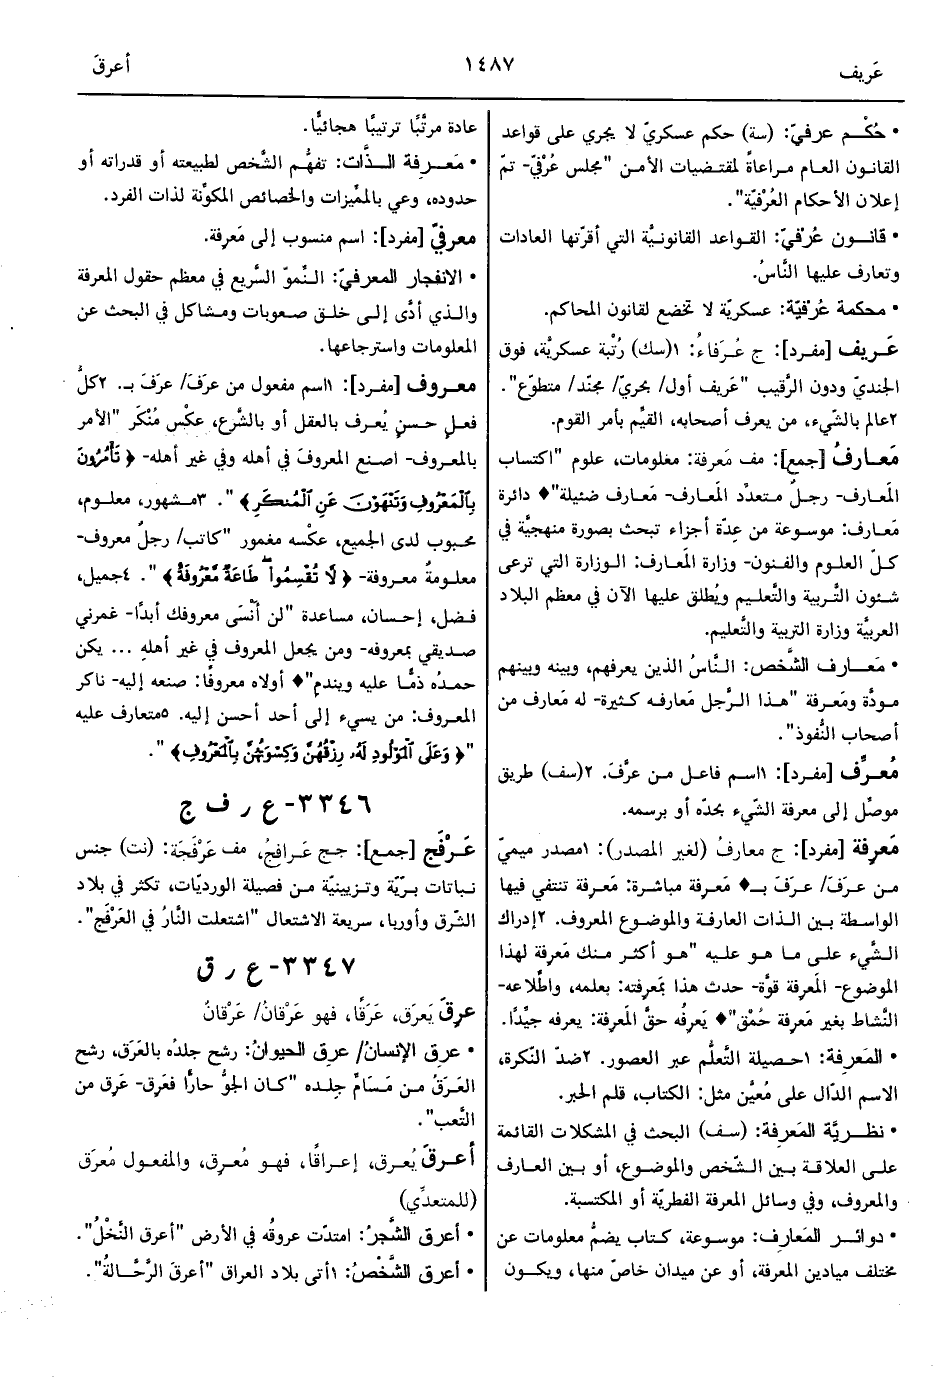 عَريف
١٤٨٧
أعرقَ
• حُكْم عرفيّ: (سة) حكم عسكريّ لا يجري على قواعد
القانون العام مراعاةً لمقتضيات الأمن "مجلس عُرْفيّ- تمّ
إعلان الأحكام العُرْفيّة".
• قانون عُرْفيّ: القواعد القانونيَّة التي أقرّتها العادات
وتعارف عليها النَّاسُ.
• محكمة عُرْفيّة: عسكريّة لا تخضع لقانون المحاكم.
عَريف [مفرد]: ج عُرَفاءُ: ١(سك) رُتْبة عسكريَّة، فوق
الجنديّ ودون الرَّقيب "عَريف أول/ بحريّ/ مجنّد/ متطوّع".
٢عالم بالشَّيء، من يعرف أصحابه، القيِّم بأمر القوم.
مَعارفُ [جمع]: مف مَعرِفة: معلومات، علوم "اكتساب
المَعارف- رجلٌ متعدِّد المَعارف- مَعارف ضئيلة"♦ دائرة
مَعارف: موسوعة من عِدّة أجزاء تبحث بصورة منهجيَّة في
كلّ العلوم والفنون- وزارة المَعارف: الوزارة التي ترعى
شئون التَّربية والتَّعليم ويُطلق عليها الآن في معظم البلاد
العربيَّة وزارة التربية والتَّعليم.
• مَعارف الشَّخص: النَّاسُ الذين يعرفهم، وبينه وبينهم
مودَّة ومَعرفة "هذا الرَّجل مَعارفه كثيرة- له مَعارف من
أصحاب النُّفوذ".
مُعرِّف [مفرد]: ١اسم فاعل من عرَّفَ. ٢(سف) طريق
موصِّل إلى معرفة الشَّيء بحدّه أو برسمه.
مَعرِفة [مفرد]: ج معارفُ (لغير المصدر): ١مصدر ميميّ
من عرَفَ/ عرَفَ بـ♦ مَعرفة مباشرة: مَعرفة تنتفي فيها
الواسطة بين الذات العارفة والموضوع المعروف. ٢إدراك
الشَّيء على ما هو عليه "هو أكثر منك مَعرفة لهذا
الموضوع- المَعرفة قوَّة- حدث هذا بمَعرفته: بعلمه، واطِّلاعه-
النَّشاط بغير مَعرفة حُمْق"♦ يَعرِفُه حقَّ المَعرفة: يعرفه جيِّدًا.
• المَعرِفة: ١حصيلة التَّعلُّم عبر العصور. ٢ضدّ النّكرة،
الاسم الدَّال على مُعيَّن مثل: الكتاب، قلم الحبر.
• نظريَّة المَعرفة: (سف) البحث في المشكلات القائمة
على العلاقة بين الشَّخص والموضوع، أو بين العارف
والمعروف، وفي وسائل المعرفة الفطريَّة أو المكتسبة.
• دوائر المَعارف: موسوعة، كتاب يضمُّ معلومات عن
مختلف ميادين المعرفة، أو عن ميدان خاصّ منها، ويكون
عادة مرتَّبًا ترتيبًا هجائيًّا.
• مَعرفة الذَّات: تفهُّم الشَّخص لطبيعته أو قدراته أو
حدوده، وعي بالمميِّزات والخصائص المكوِّنة لذات الفرد.
معرفيّ [مفرد]: اسم منسوب إلى مَعرِفة.
• الانفجار المعرفيّ: النّموّ السَّريع في معظم حقول المعرفة
والذي أدَّى إلى خلق صعوبات ومشاكل في البحث عن
المعلومات واسترجاعها.
معروف [مفرد]: ١اسم مفعول من عرَفَ/ عرَفَ بـ. ٢كلُّ
فعلٍ حسنٍ يُعرف بالعقل أو بالشَّرع، عكْس مُنْكَر "الأمر
بالمعروف- اصنع المعروفَ في أهله وفي غير أهله- ﴿ تَأْمُرُونَ
بِالْمَعْرُوفِ وَتَنْهَوْنَ عَنِ الْمُنكَرِ ﴾ ". ٣مشهور، معلوم،
محبوب لدى الجميع، عكْسه مغمور "كاتب/ رجلٌ معروف-
معلومةٌ معروفة- ﴿ لَا تُقْسِمُوا طَاعَةٌ مَّعْرُوفَةٌ ﴾ ". ٤جميل،
فضل، إحسان، مساعدة "لن أَنْسَى معروفك أبدًا- غمرني
صديقي بمعروفه- ومن يجعل المعروف في غير أهله ... يكن
حمدُه ذمًّا عليه ويندم"♦ أولاه معروفًا: صنعه إليه- ناكر
المعروف: من يسيء إلى أحد أحسن إليه. ٥متعارف عليه
"﴿ وَعَلَى الْمَوْلُودِ لَهُ رِزْقُهُنَّ وَكِسْوَتُهُنَّ بِالْمَعْرُوفِ ﴾ ".
٣٣٤٦- ع ر ف ج
عَرْفَج [جمع]: جج عَرافِجُ، مف عَرْفَجَة: (نت) جنس
نباتات برّيّة وتزيينية من فصيلة الورديّات، تكثر في بلاد
الشَّرق وأوربا، سريعة الاشتعال "اشتعلت النَّارُ في العَرْفَج".
٣٣٤٧- ع ر ق
عرِقَ يَعرَق، عَرَقًا، فهو عَرْقانُ/ عَرْقانٌ
• عرِق الإنسانُ/ عرِق الحيوانُ: رشح جلدُه بالعَرَق، رشح
العَرَقُ من مَسَامِّ جلده "كان الجوُّ حارًّا فعَرِق- عَرِق من
التَّعب".
أعرقَ يُعرق، إعراقًا، فهو مُعرِق، والمفعول مُعرَق
(للمتعدِّي)
• أعرق الشَّجرُ: امتدّت عروقُه في الأرض "أعرق النَّخْلُ".
• أعرق الشَّخْصُ: ١أتى بلاد العراق "أعرقَ الرَّحَّالةُ".